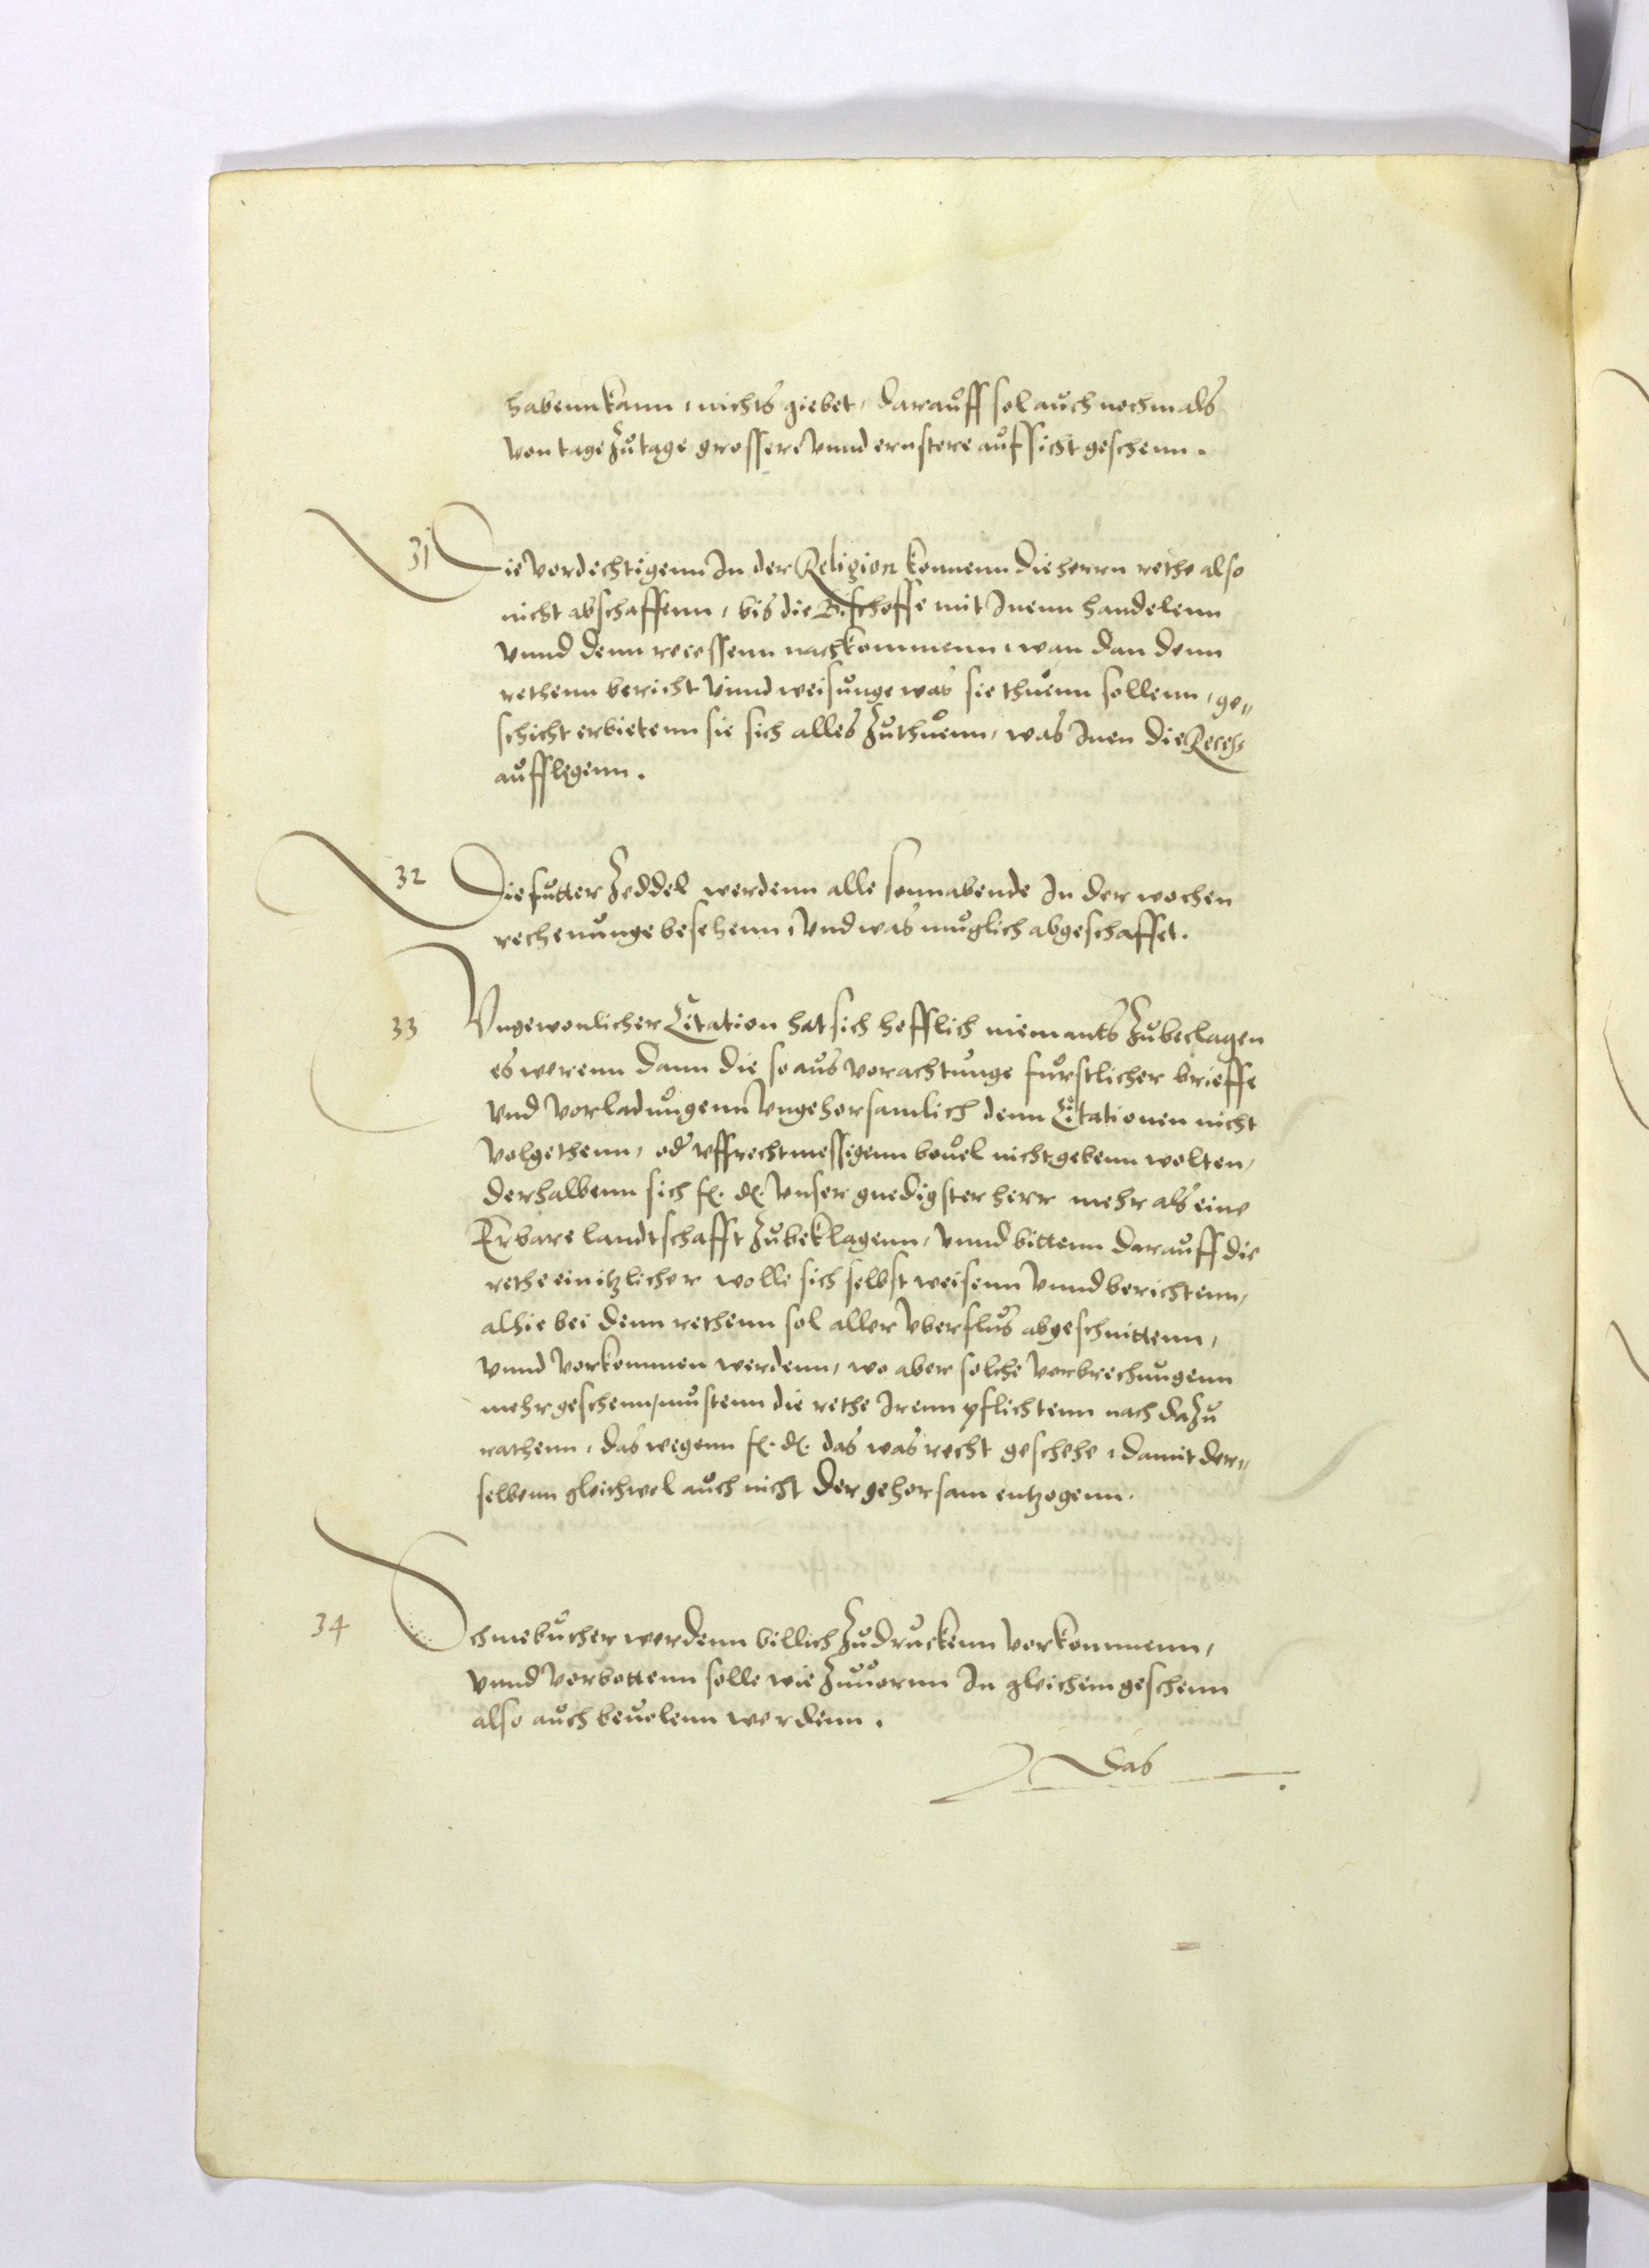 habenn kann, nichts giebet, darauff sol auch nochmals
von tage zu tage grossere vnnd ernstere aufsicht geschenn.
31 Die vordechtigenn In der Religion konnenn die herrn rethe also
nicht abschaffenn, bis die Bischoffe mit Inenn handelenn
vnnd denn recessenn nachkommenn, wan dan denn
rethenn bericht vnnd weisunge was sie thuenn sollenn, ge„
schicht erbietenn sie sich alles zuthuenn, was Inen die Recess
aufflegenn.
32 Die futter zeddel werdenn alle sonnabende In der wochen
rechenunge besehenn, vnd was muglich abgeschaffet.
33 Vngewonlicher Citation hat sich hefflich niemants zubeclagen
es werenn dann die so aus vorachtunge furstlicher brieffe
vnd vorladungenn vngehorsamlich denn Citationen nicht
volgethenn, oder vff rechtmessigenn beuel nicht gebenn wolten,
derhalbenn sich f. d. vnser gnedigster herr mehr als eine
Erbare landtschafft zubeklagenn, vnnd bittenn darauff die
rethe ein itzlicher wolle sich selbst weisenn vnnd berichtenn,
alhie bei denn rethenn sol aller vberflus abgeschnittenn,
vnnd vorkommen werdenn, wo aber solche vorbrechungenn
mehr geschenn, mustenn die rethe Irenn pflichtenn nach dazu
rathenn, das wegenn f. d. das was recht geschehe, damit der„
selbenn gleichwol auch nicht der gehorsam entzogenn.
34 Schmebucher werdenn billich zudruckenn vorkommenn,
vnnd vorbottenn solle wie zuuornn In gleichim geschenn
also auch beuolenn werdenn.
Das